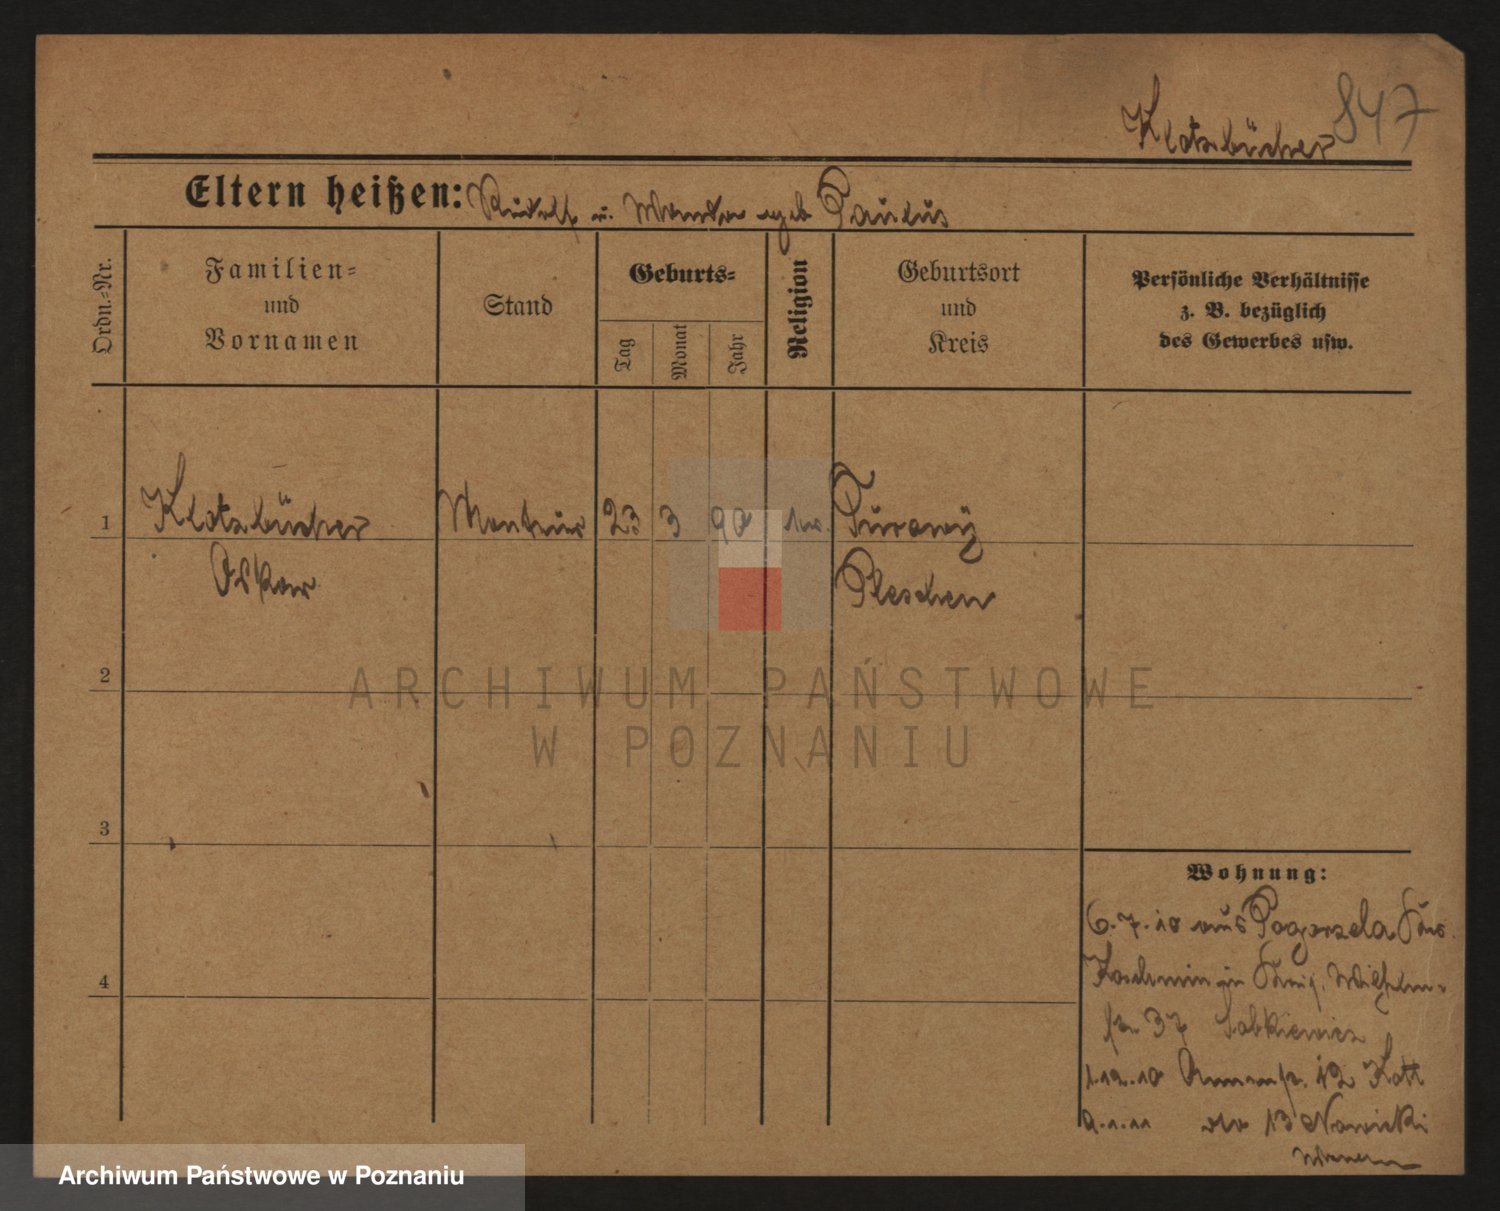 847
Klotzbücher
Eltern heißen: Rudolf u. geb Paulus
Ordn.=Nr.
Familien=
und
Vornamen
Stand
Geburts=
Tag
Monat
Jahr
Religion
Geburtsort
und
Kreis
Persönliche Verhältnisse
z. B. bezüglich
des Gewerbes usw.
1 Klotzbücher Monteur 23 3 90 Turowy
Oskar Pleschen
2
3
4
Wohnung:
6.7.10 aus Pogorzela Krs.
Koschmin in König. Wilhelm-
37
1.12.10 12 Kott
9.1.11 13 Nowicki
ARCHIWUM PAŃSTWOWE
W POZNANIU
Archiwum Państwowe w Poznaniu